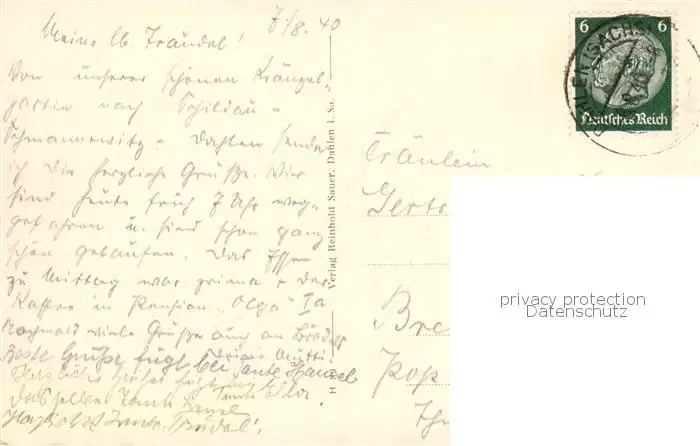 7/8. 40
Meine lb. Traudel!
Von unserer schönen Kränzel-
partie nach Schildau -
Schmannewitz - Dahlen sende
ich Dir herzliche Grüße. Wir
sind heute früh 7 Uhr weg-
gefahren u. sind schon ganz
schön gelaufen. Das Essen
zu Mittag war prima u. der
Kaffee in Pension "Olga" Ia
Nochmals viele Grüße auch an
Deine Mutti.
Beste Grüße fügt bei Tante Hansel
Herzliche Grüße
Dasselbe Tante
Verlag Reinhold Sauer, Dahlen i. Sa.
6 6
Deutsches Reich
DAHLEN (SACHS)
Fräulein
Gert
Bre
privacy protection
Datenschutz